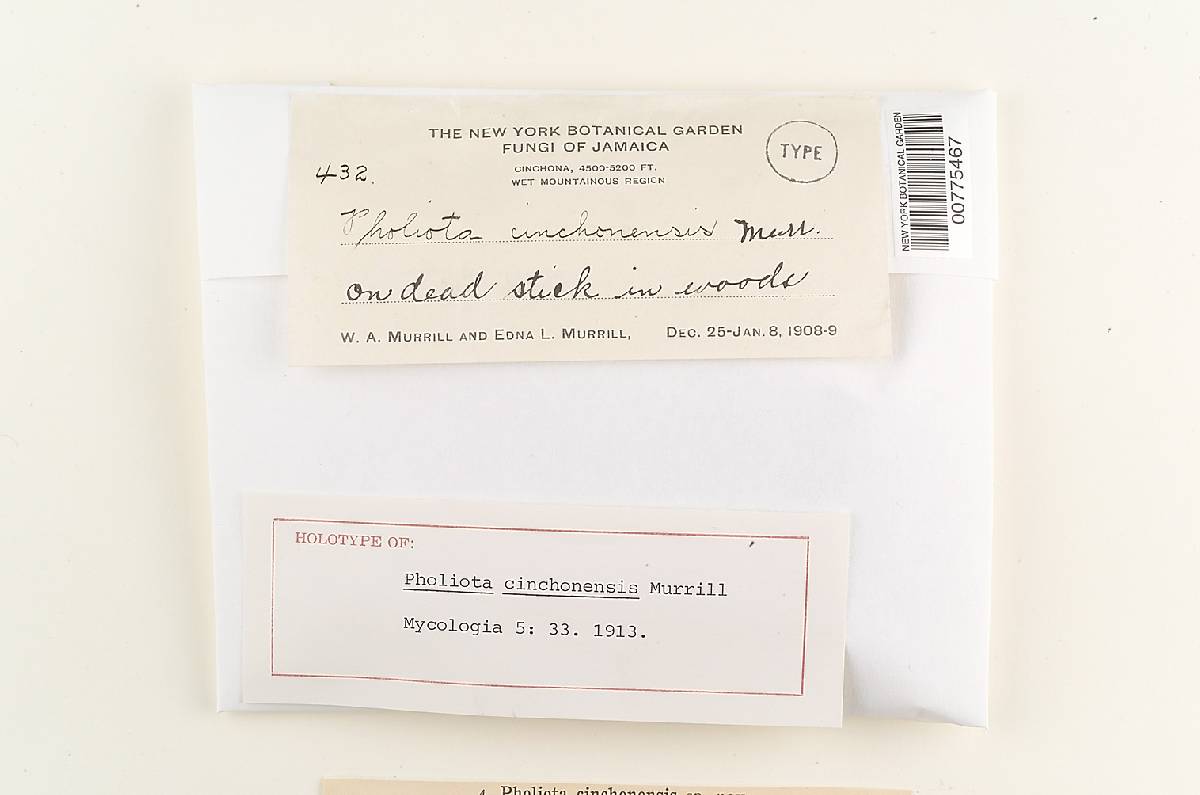 THE NEW YORK BOTANICAL GARDEN
FUNGI OF JAMAICA
TYPE
432.
CINCHONA, 4500-5200 FT.
WET MOUNTAINOUS REGION
Pholiota cinchonensis Murr.
on dead stick in woods
W. A. MURRILL AND EDNA L. MURRILL, DEC. 25-JAN. 8, 1908-9
NEW YORK BOTANICAL GARDEN
00775467
HOLOTYPE OF:
Pholiota cinchonensis Murrill
Mycologia 5: 33. 1913.
4. Pholiota cinchonensis sp. nov.